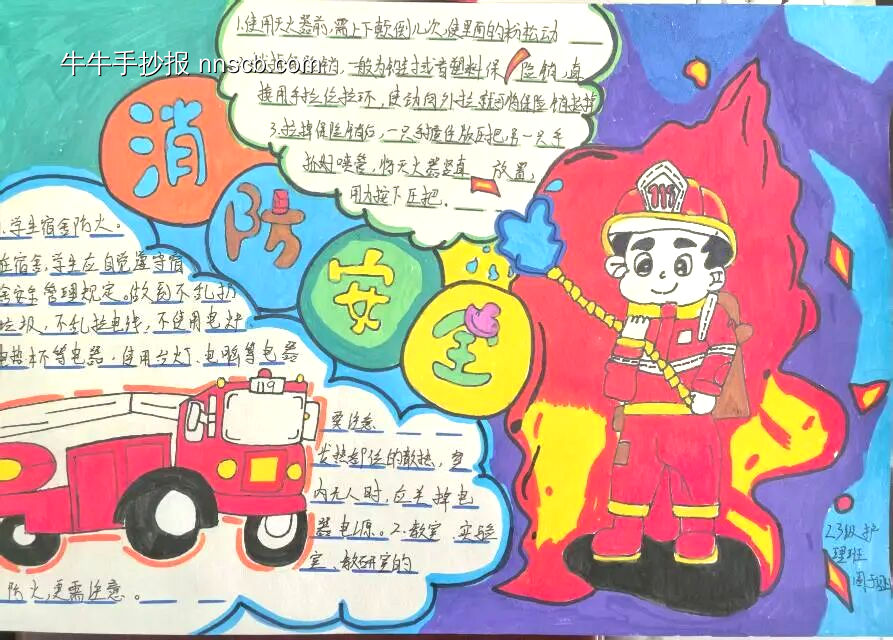 牛牛手抄报 nnscb.com
消防安全
1.使用灭火器前,需上下颠倒几次,使里面的粉松动
一般为铅封或者塑料保险销,直
接用手拉住拉环,
3.拉掉保险销后,一只手握住压把,另一只手
扶好喷管,将灭火器竖直放置,
用力按下压把.
1.学生宿舍防火。
在宿舍,学生应自觉遵守宿
舍安全管理规定。做到不乱扔
垃圾,不乱拉电线,不使用电炉、
电热杯等电器,使用台灯、电脑等电器
119
要注意
发热部位的散热,室
内无人时,应关掉电
器电源。2.教室、实验
室、教研室的
防火,更需注意。
119
23级护
理班